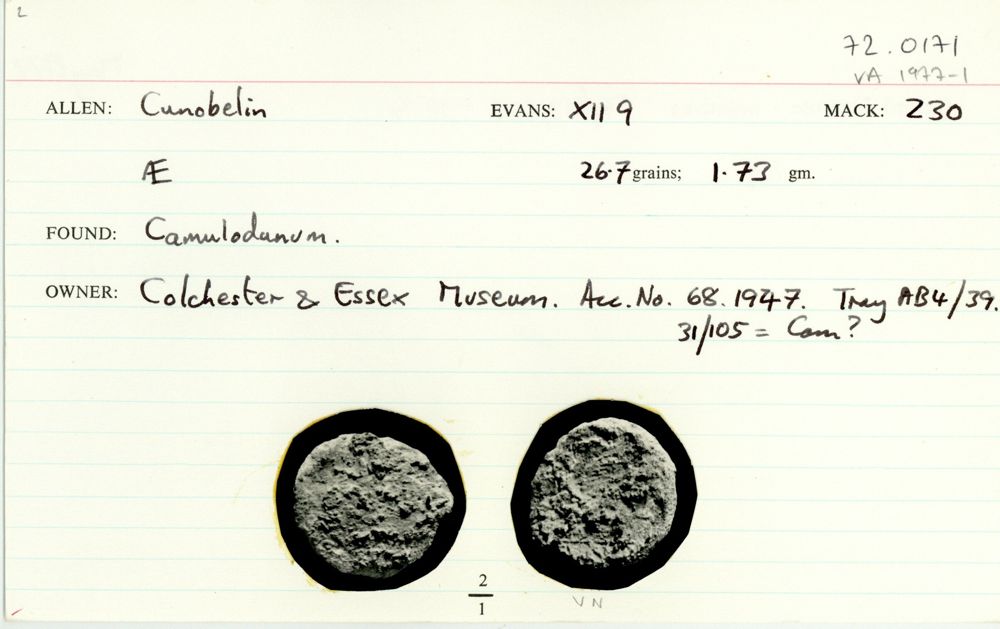 2
72.0171
VA 1977-1
ALLEN: Cunobelin EVANS: XII 9 MACK: 230
Æ 26.7 grains; 1.73 gm.
FOUND: Camulodunum.
OWNER: Colchester & Essex Museum. Acc. No. 68.1947. Tray AB4/39.
31/105 = Cam?
2
1
VN